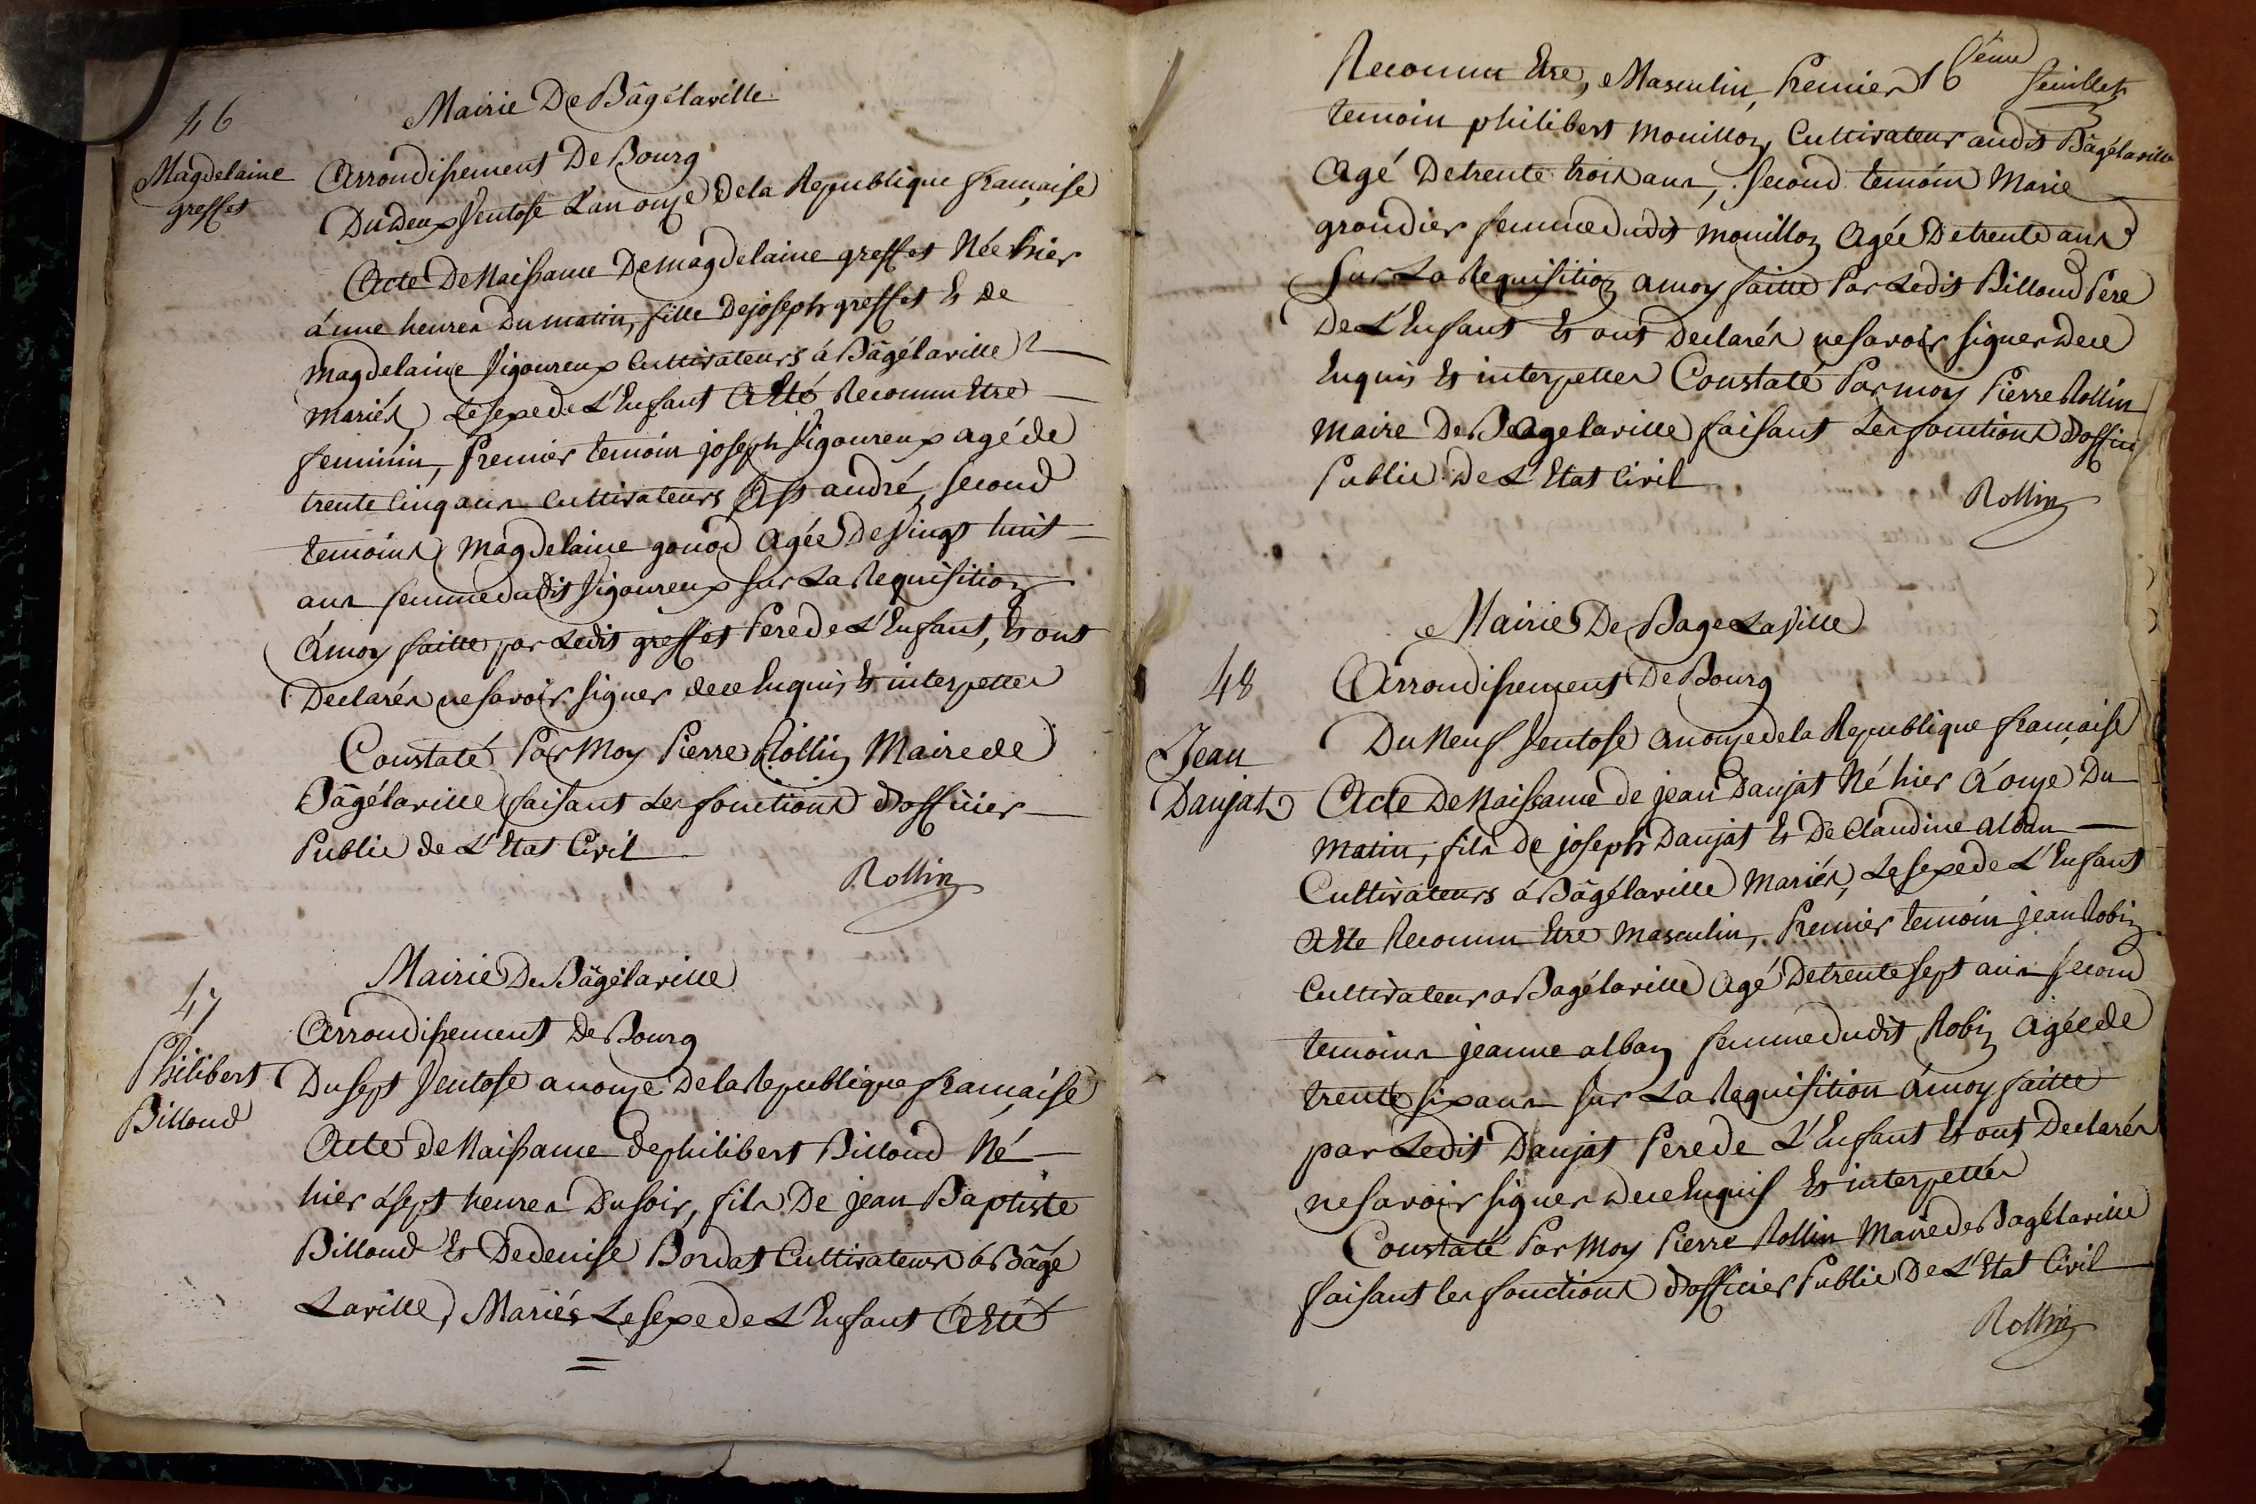 46
Magdelaine
greffet
Mairie De Bâgélaville
Arrondissement De Bourg
Du deux Ventose L'an onze De la Republique française
Acte De Naissance De magdelaine greffet Née hier
à une heures Du matin, fille De joseph greffet Et de
magdelaine Vigoureux Cultivateurs à Bâgélaville
mariés, Le sexe de L'Enfant A Eté Reconnu Etre
feminin, Premier temoin joseph Vigoureux agé de
trente Cinq ans Cultivateurs A St andré, Second
temoins Magdelaine gonod Agée De Vingt huit
ans femme dudit Vigoureux Sur La Requisition
à moy faitte par Ledit greffet Pere de L'Enfant, Et ont
Declarés ne Savoir Signer de ce Enquis Et interpettés
Constaté Par Moy Pierre Rollin Maire de
Bâgélaville faisant Les fonctions d'officier
Public de L'Etat Civil
Rollin
47
Philibert
Billoud
Mairie De Bâgélaville
Arrondissement de Bourg
Du Sept Ventose an onze De la Republique francaise
Acte de Naissance de philibert Billoud Né
hier à Sept heures Du Soir, fils De jean Baptiste
Billoud Et De denise Bordat Cultivateurs à Bâgé
Laville, Mariés Le Sexe de L'Enfant A Eté
16 ème feuillet
Reconnu Etre, Masculin, Premier
temoin philibert mouillon, Cultivateur audit Bâgélaville
Agé De trente trois ans, Second temoin Marie
grondier femme dudit mouillon Agée De trente ans
Sur La Requisition a moy faitte Par Ledit Billoud Pere
De L'Enfant Et ont Declarés ne Savoir Signer de ce
Enquis Et interpettés Constaté Par moy Pierre Rollin
Maire De Bagelaville faisant Les fonctions d'officier
Public De L'Etat Civil
Rollin
48
Jean
Danjat
Mairie De Bage Laville
Arrondissement De Bourg
Du Neuf Ventose an onze de la Republique francaise
Acte De Naissance de jean Danjat Né hier à onze Du
matin, fils de joseph Danjat Et De Claudine alban
Cultivateurs à Bâgélaville Mariés, Le Sexe de L'Enfant
A Eté Reconnu Etre Masculin, Premier temoin jean Robin
Cultivateur a Bagélaville Agé De trente Sept ans Second
temoins jeanne alban femme dudit Robin Agée de
trente Six ans Sur La Requisition à moy faitte
par Ledit Danjat Pere de L'Enfant Et ont Declarés
ne Savoir Signer de ce Enquis Et interpettés
Constaté Par Moy Pierre Rollin Maire de Bagélaville
faisant les fonctions d'officier Public De L'Etat Civil
Rollin